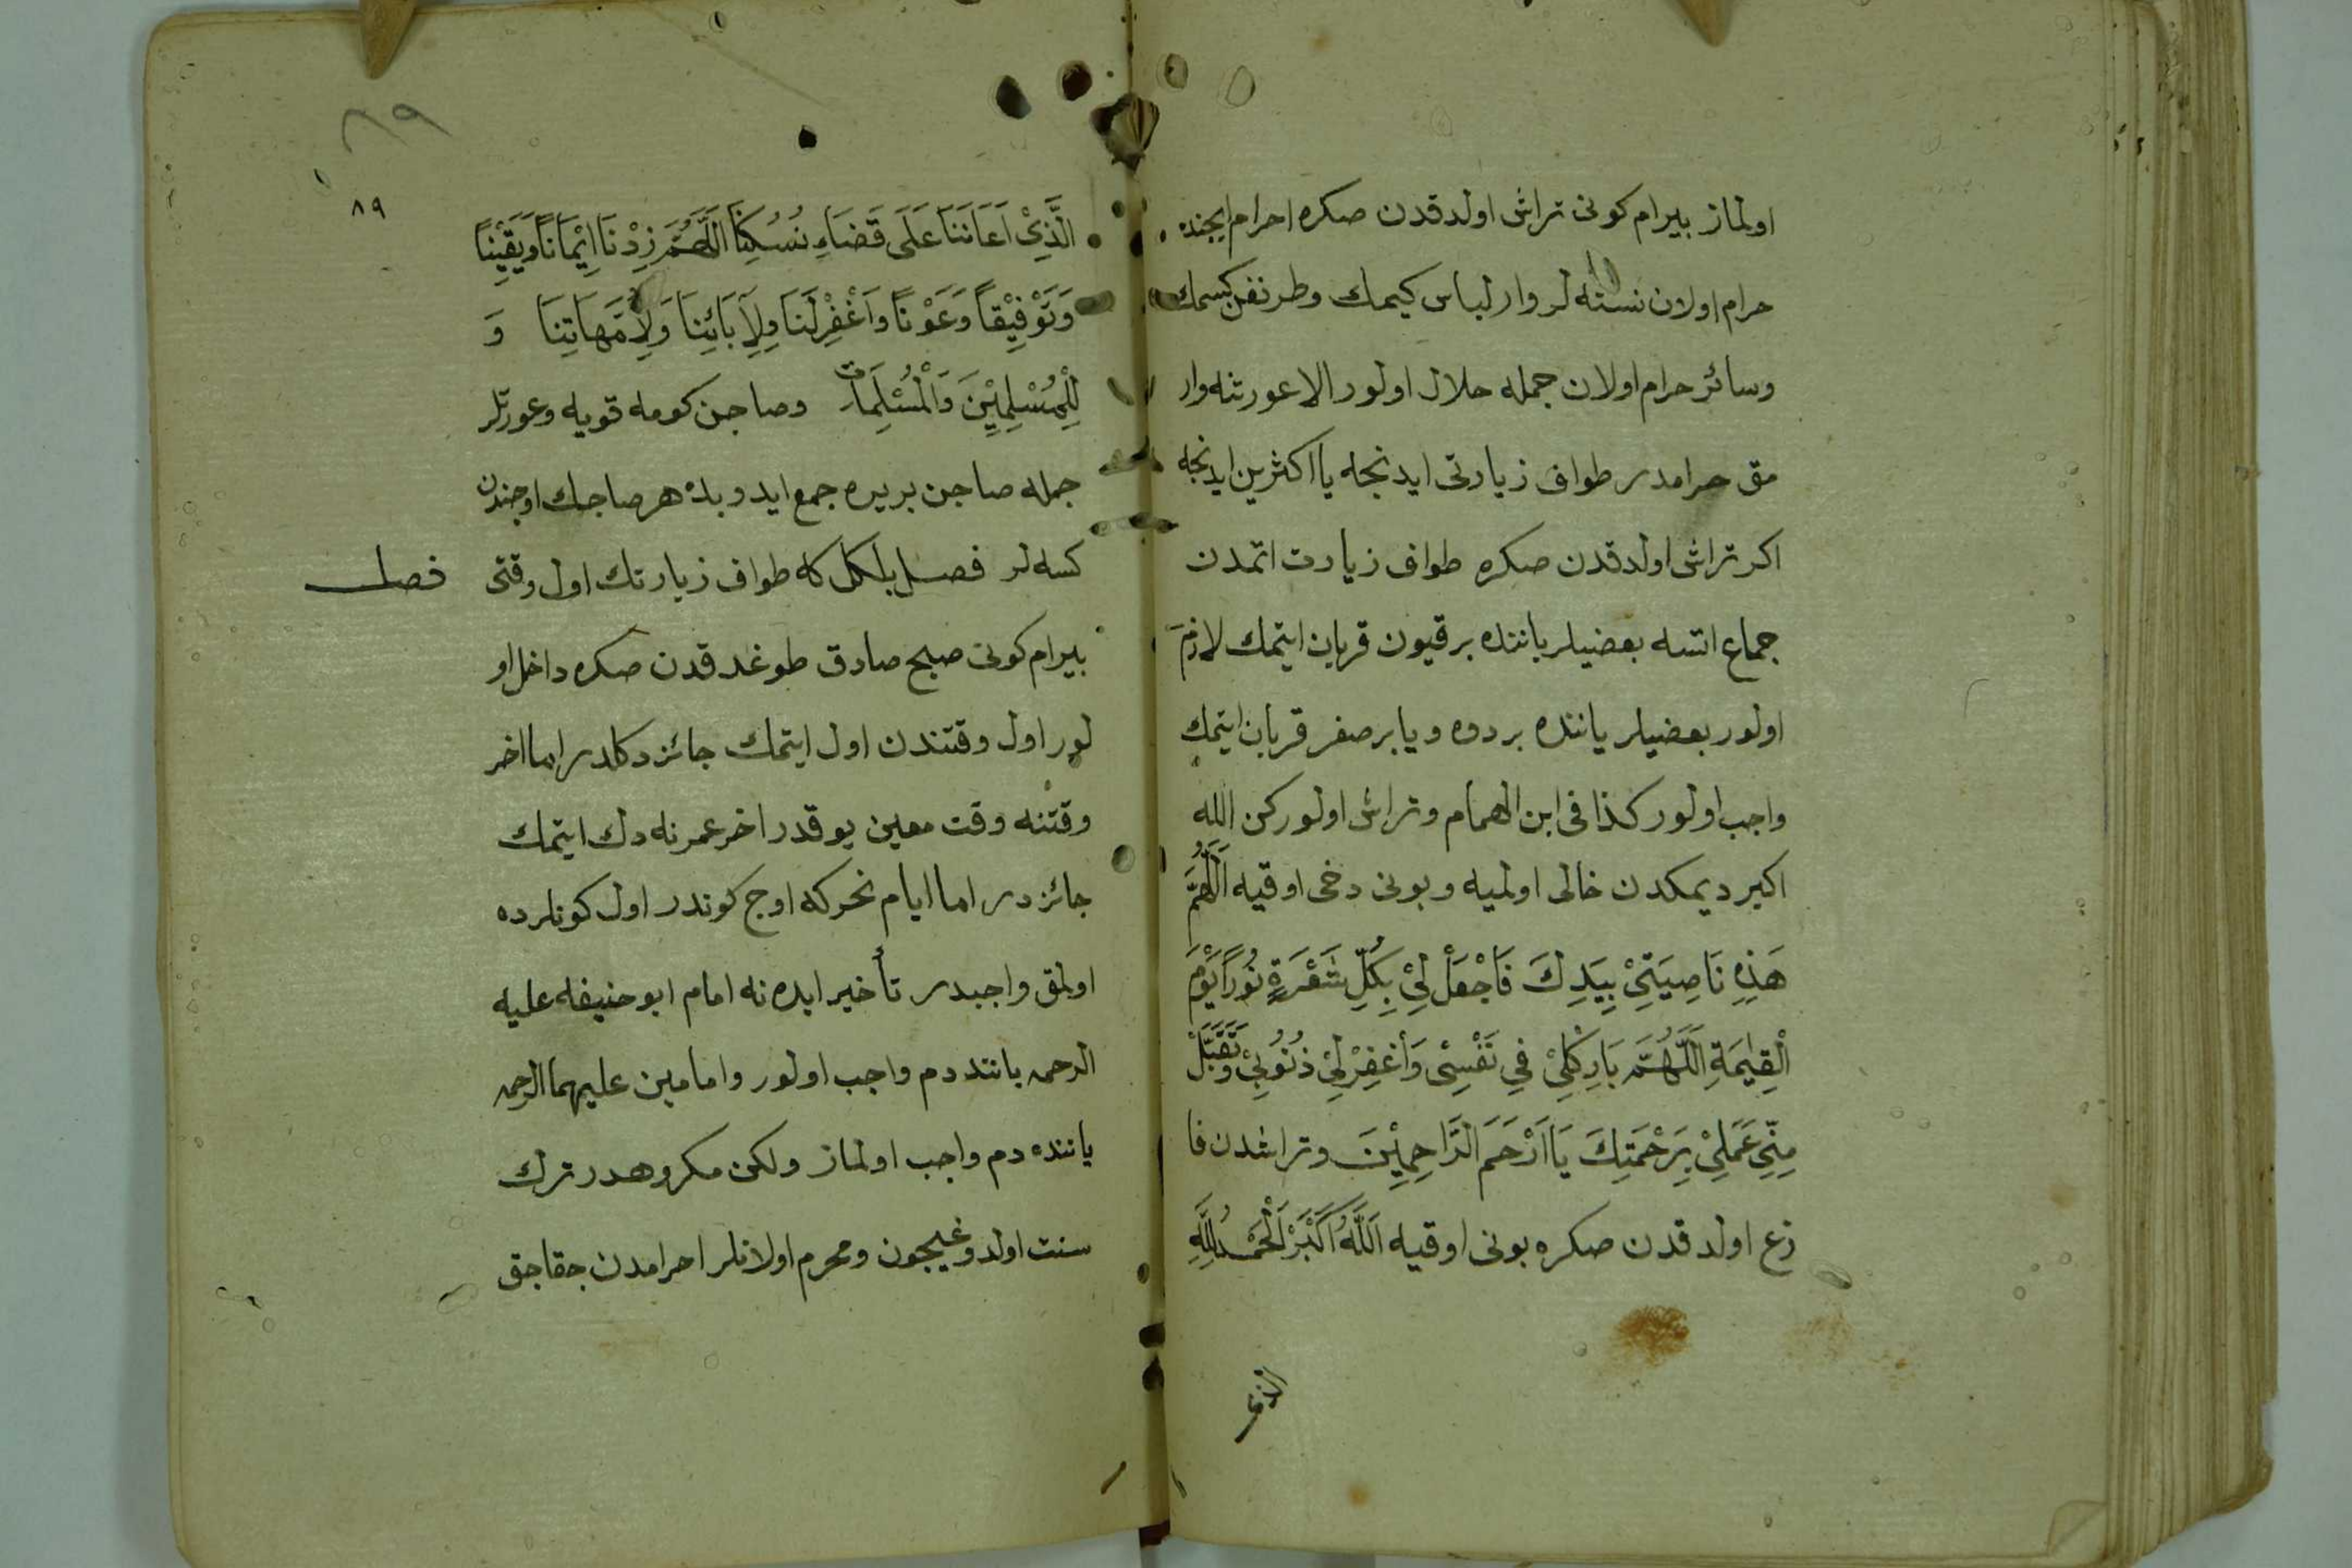 اولماز بيرام كونى تراش اولدقدن صكره احرام ايچنده
حرام اولان نسته لر وار لباس كيمك وطرنغن كسمك
وسائر حرام اولان جمله حلال اولور الا عورتنه وار
مق حرامدر طواف زيارتى ايدنجه يا اكثرين ايدنجه
اكر تراش اولدقدن صكره طواف زيارت اتمدن
جماع اتسه بعضيلر ياننده بر قيون قربان ايتمك لازم
اولور بعضيلر ياننده بر دوه ويا بر صغر قربان ايتمك
واجب اولور كذا فى ابن الهمام وتراش اولوركن الله
اكبر ديمكدن خالى اولميه وبونى دخى اوقيه اَللّٰهُمَّ
هَذِهِ نَاصِيَتِىْ بِيَدِكَ فَاجْعَلْ لِىْ بِكُلِّ شَعْرَةٍ نُورًا يَوْمَ
الْقِيٰمَةِ اَللّٰهُمَّ بَارِكْ لِىْ فِى نَفْسِىْ وَاغْفِرْ لِىْ ذُنُوبِىْ وَتَقَبَّلْ
مِنِّى عَمَلِىْ بِرَحْمَتِكَ يَا اَرْحَمَ الرَّاحِمِيْنَ وتراشدن فا
رغ اولدقدن صكره بونى اوقيه اَللَّهُ اَكْبَرْ اَلْحَمْدُ لِلَّهِ
الذى
٨٩
٨٩
الَّذِىْ اَعَانَنَا عَلَى قَضَاءِ نُسُكِنَا اَللَّهُمَّ زِدْنَا اِيْمَانًا وَيَقِيْنًا
وَتَوْفِيْقًا وَعَوْنًا وَاغْفِرْ لَنَا وَلِاٰبَائِنَا وَلِاُمَّهَاتِنَا وَ
لِلْمُسْلِمِيْنَ وَالْمُسْلِمَات وصاچن كومه قويه وعورتلر
جمله صاچن بر يره جمع ايدوبده هر صاچك اوجندن
كسه لر فصل بلكل كه طواف زيارتك اول وقتى
فصل
بيرام كونى صبح صادق طوغدقدن صكره داخل او
لور اول وقتندن اول ايتمك جائز دكلدر اما اخر
وقتنه وقت معين يوقدر اخر عمرنه دك ايتمك
جائزدر اما ايام نحر كه اوچ كوندر اول كونلرده
اولمق واجبدر تأخير ايده نه امام ابو حنيفه عليه
الرحمه ياننده دم واجب اولور وامامين عليهما الرحمه
ياننده دم واجب اولماز ولكن مكروهدر ترك
سنت اولدوغيچون ومحرم اولانلر احرامدن چقاجق